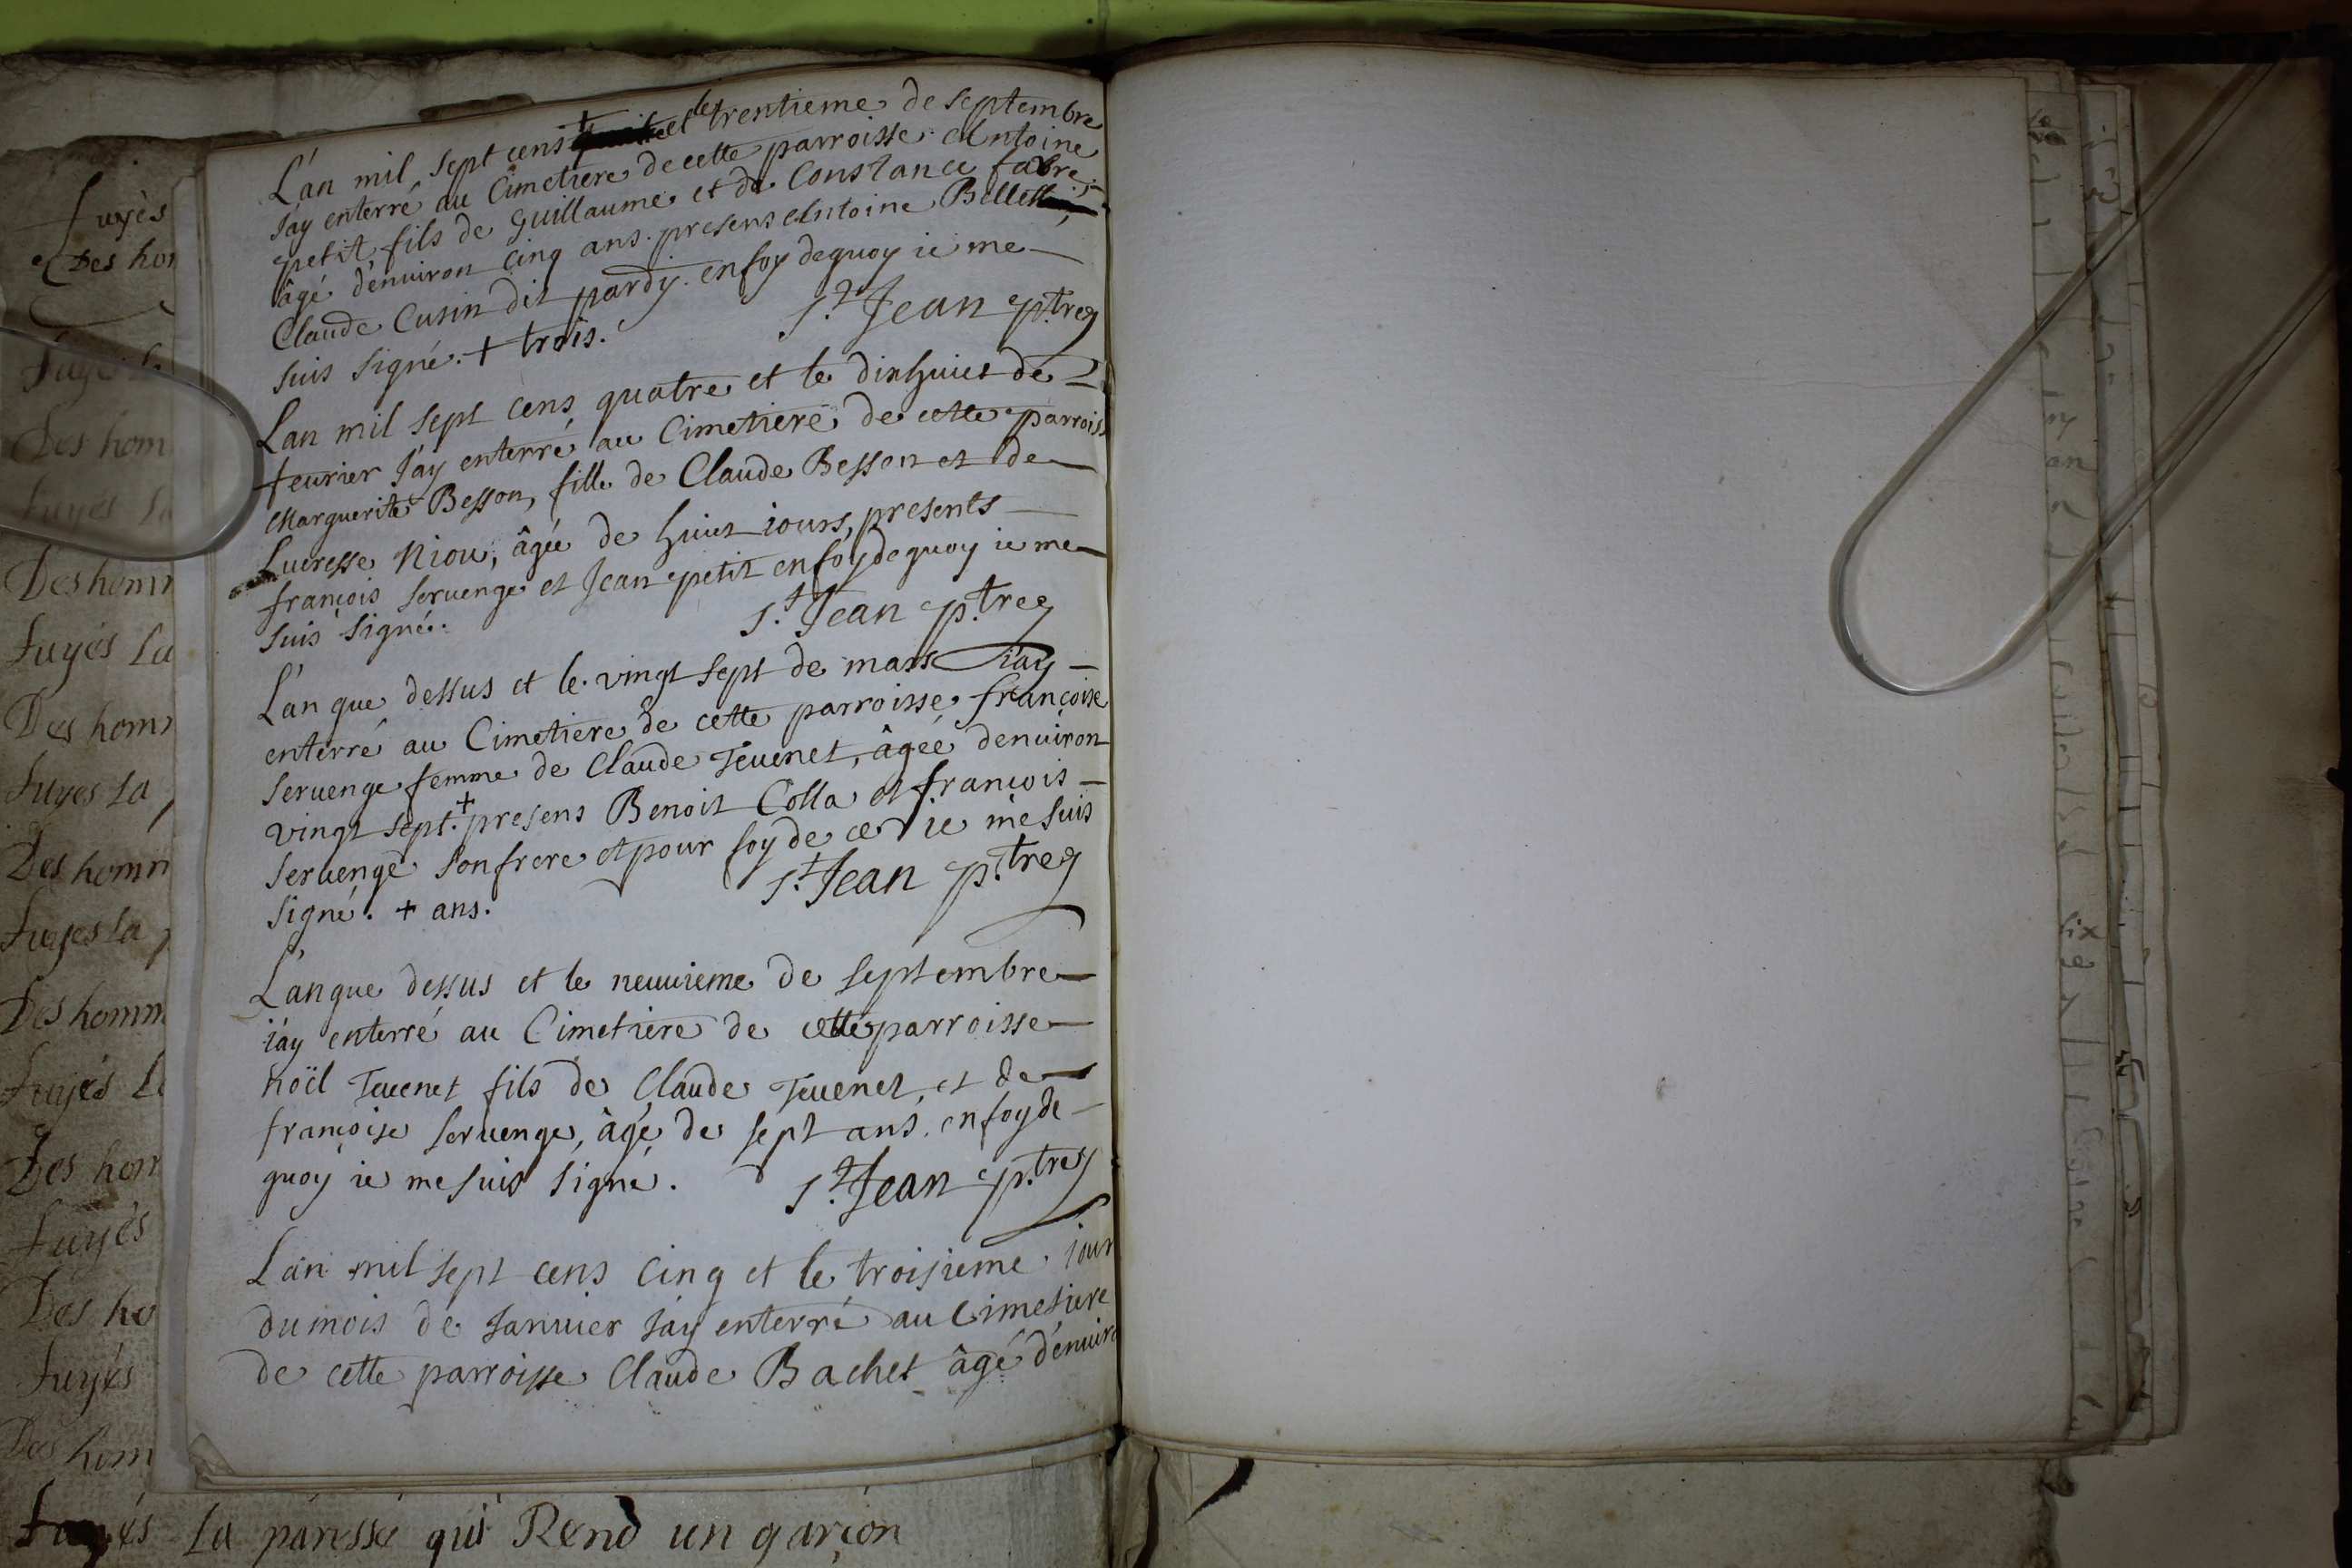 L'an mil sept cens + et le trentieme de septembre
J'ay enterré au Cimetiere de cette parroisse Antoine
petit, fils de Guillaume et de Constance fabre,
âgé d'enuiron cinq ans. presens Antoine
Claude Cusin dit pardy. en foy de quoy ie me
suis signé. + trois. St. Jean ptre
L'an mil sept cens quatre et le dixhuict de
feurier J'ay enterré au Cimetiere de cette parroiss
Marguerite Besson, fille de Claude Besson et de
Lucresse Niou, âgée de huict iours, presents
françois seruenge et Jean petit en foy de quoy ie me
suis signé. St. Jean ptre
L'an que dessus et le vingt sept de mars i'ay
enterré au Cimetiere de cette parroisse françoise
seruenge femme de Claude Teuenet, âgée denuiron
vingt sept. + presens Benoit Colla et françois
seruenge son frere et pour foy de ce ie me suis
signé. + ans. St. Jean ptre
L'an que dessus et le neuuieme de septembre
i'ay enterré au Cimetiere de cette parroisse
noël Teuenet fils de Claude Teuenet, et de
françoise seruenge, âgé de sept ans. en foy de
quoy ie me suis signé. St. Jean ptre
L'an mil sept cens cinq et le troisieme jour
du mois de Januier J'ay enterré au Cimetiere
de cette parroisse Claude Bachet âgé d'enuiro
fuyés
Des hom
Des hom
fuyés La
Des hom
fuyés La
Des hom
fuyes La
Des homm
fuyes la
Des homm
fuyés L
Des hom
fuyés
Des ho
fuyés
Des hom
fuyés La paresse qui Rend un garçon